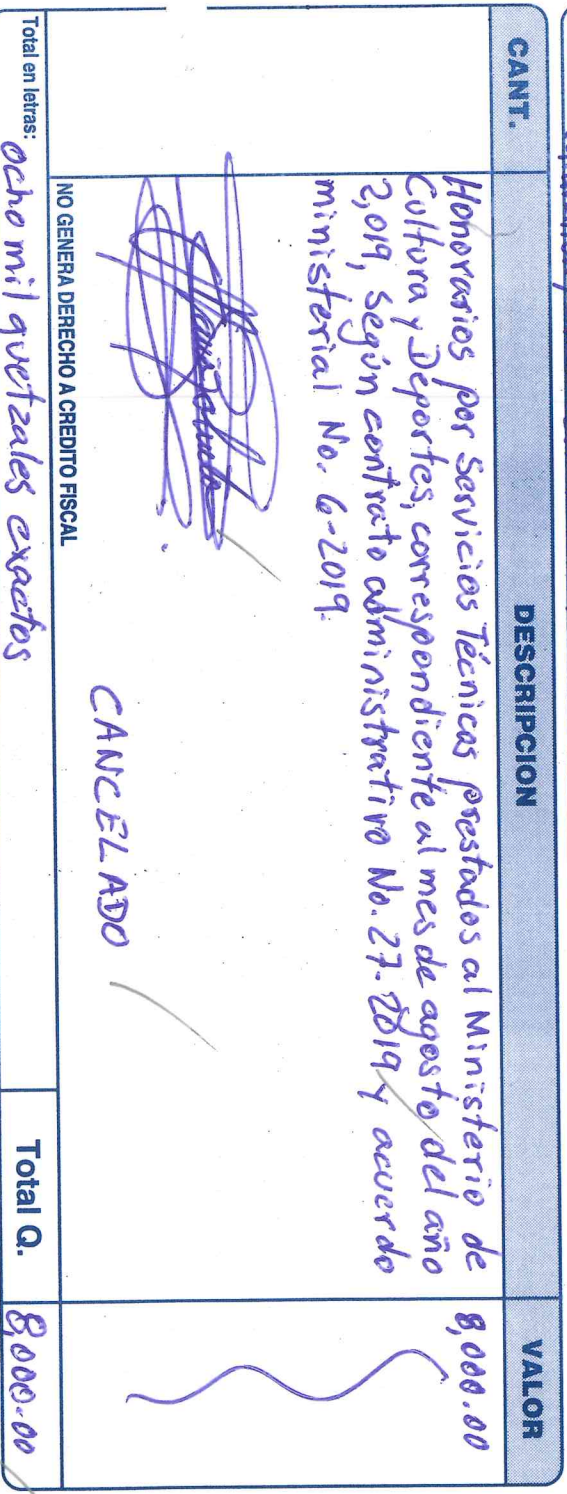 CANT. DESCRIPCION VALOR
Honorarios por Servicios Técnicos prestados al Ministerio de 8,000.00
Cultura y Deportes, correspondiente al mes de agosto del año
2,019, según contrato administrativo No. 27-2019 y acuerdo
ministerial No. 6-2019.
CANCELADO
NO GENERA DERECHO A CREDITO FISCAL
Total en letras: ocho mil quetzales exactos Total Q. 8,000.00